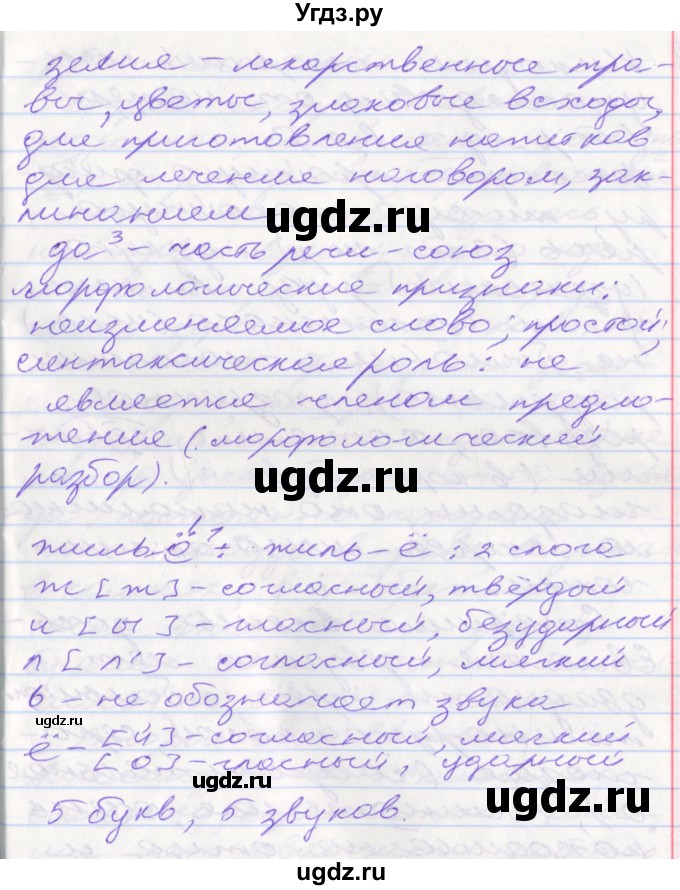 Угдз.ру
зелия – лекарственные тра-
вы, цветы, злаковые всходы,
для приготовления напитков
для лечения наговором, зак-
линанием
ugdz.ru
да³ – часть речи – союз
морфологические признаки:
неизменяемое слово; простой;
синтаксическая роль: не
является членом предло-
жения (морфологический
разбор).
ugdz.ru
жильё¹: жиль-ё: 2 слога
ж [ж] – согласный, твёрдый
и [ы] – гласный, безударный
л [л'] – согласный, мягкий
ugdz.ru
ь – не обозначает звука
ugdz.ru
ё – [й] – согласный, мягкий
[о] – гласный, ударный
ugdz.ru
5 букв, 5 звуков.
ugdz.ru
ugdz.ru